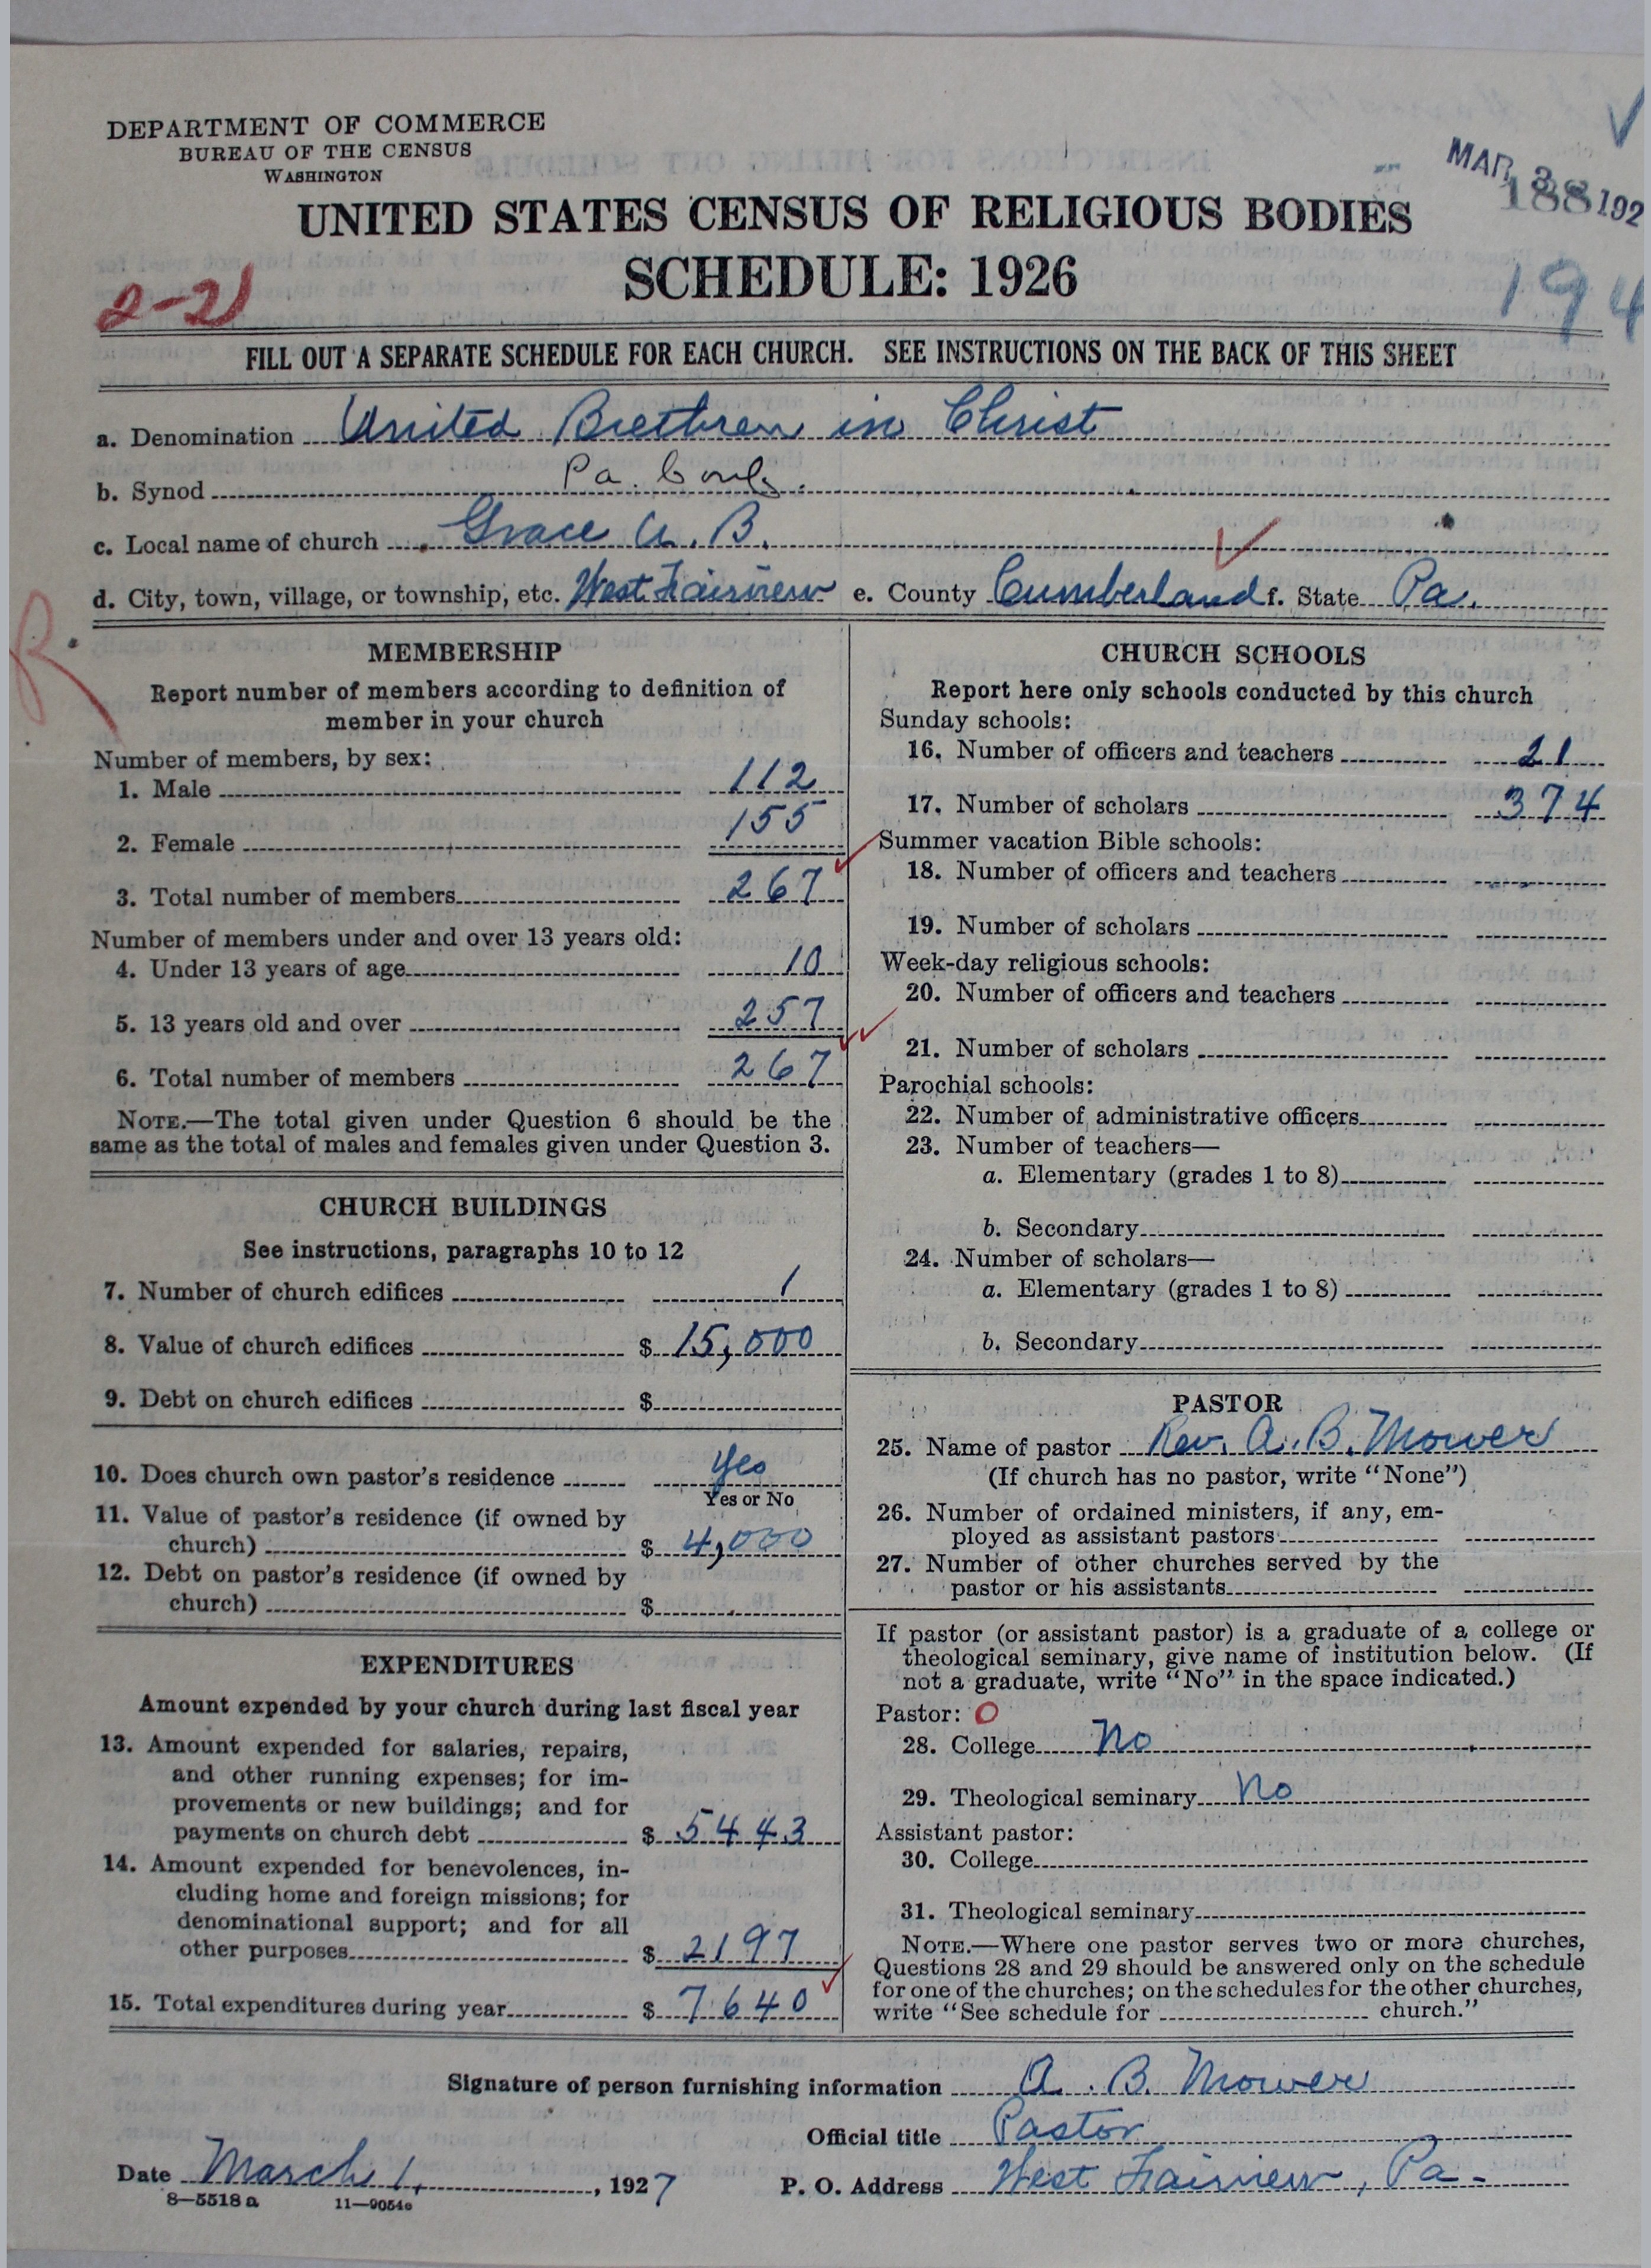 DEPARTMENT OF COMMERCE
BUREAU OF THE CENSUS
WASHINGTON
MAR 3 192
188
UNITED STATES CENSUS OF RELIGIOUS BODIES
SCHEDULE: 1926
2-21
194
FILL OUT A SEPARATE SCHEDULE FOR EACH CHURCH. SEE INSTRUCTIONS ON THE BACK OF THIS SHEET
a. Denomination United Brethren in Christ
b. Synod Pa. Conf.
c. Local name of church Grace U. B.
d. City, town, village, or township, etc. West Fairview e. County Cumberland f. State Pa.
R
MEMBERSHIP
Report number of members according to definition of
member in your church
Number of members, by sex:
1. Male 112
2. Female 155
3. Total number of members 267
Number of members under and over 13 years old:
4. Under 13 years of age 10
5. 13 years old and over 257
6. Total number of members 267
NOTE.—The total given under Question 6 should be the
same as the total of males and females given under Question 3.
CHURCH BUILDINGS
See instructions, paragraphs 10 to 12
7. Number of church edifices 1
8. Value of church edifices $ 15,000
9. Debt on church edifices $
10. Does church own pastor's residence Yes
Yes or No
11. Value of pastor's residence (if owned by
church) $ 4,000
12. Debt on pastor's residence (if owned by
church) $
EXPENDITURES
Amount expended by your church during last fiscal year
13. Amount expended for salaries, repairs,
and other running expenses; for im-
provements or new buildings; and for
payments on church debt $ 5443
14. Amount expended for benevolences, in-
cluding home and foreign missions; for
denominational support; and for all
other purposes $ 2197
15. Total expenditures during year $ 7640
CHURCH SCHOOLS
Report here only schools conducted by this church
Sunday schools:
16. Number of officers and teachers 21
17. Number of scholars 374
Summer vacation Bible schools:
18. Number of officers and teachers
19. Number of scholars
Week-day religious schools:
20. Number of officers and teachers
21. Number of scholars
Parochial schools:
22. Number of administrative officers
23. Number of teachers—
a. Elementary (grades 1 to 8)
b. Secondary
24. Number of scholars—
a. Elementary (grades 1 to 8)
b. Secondary
PASTOR
25. Name of pastor Rev. A. B. Mower
(If church has no pastor, write "None")
26. Number of ordained ministers, if any, em-
ployed as assistant pastors
27. Number of other churches served by the
pastor or his assistants
If pastor (or assistant pastor) is a graduate of a college or
theological seminary, give name of institution below. (If
not a graduate, write "No" in the space indicated.)
Pastor: O
28. College No
29. Theological seminary No
Assistant pastor:
30. College
31. Theological seminary
NOTE.—Where one pastor serves two or more churches,
Questions 28 and 29 should be answered only on the schedule
for one of the churches; on the schedules for the other churches,
write "See schedule for church."
Signature of person furnishing information A. B. Mower
Official title Pastor
Date March 1, 1927 P. O. Address West Fairview, Pa.
8—5518 a 11—9054c